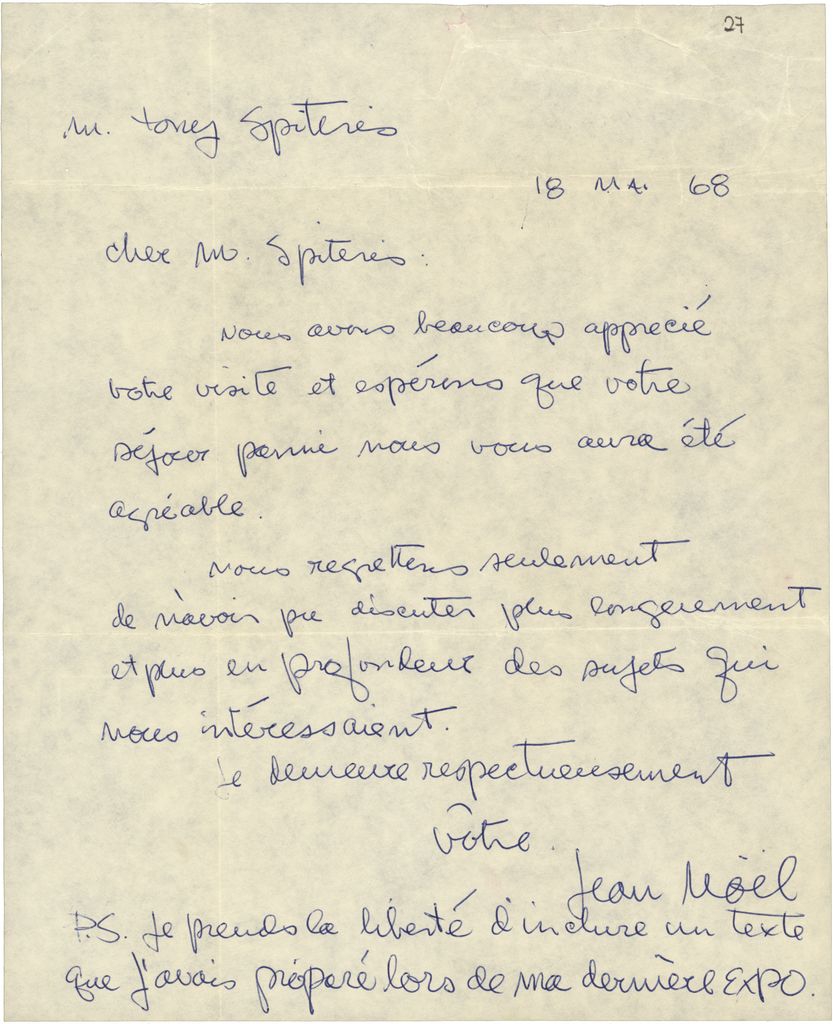 27
M. Toney Spiteris
18 MA. 68
Cher M. Spiteris.
Nous avons beaucoup apprecié
votre visite et espérons que votre
séjour parmi nous vous aura été
agréable.
Nous regrettons seulement
de n'avoir pu discuter plus longuement
et plus en profondeur des sujets qui
nous intéressaient.
Je demeure respectueusement
vôtre.
Jean Noël
P.S. Je prends la liberté d'inclure un texte
que j'avais préparé lors de ma dernière EXPO.